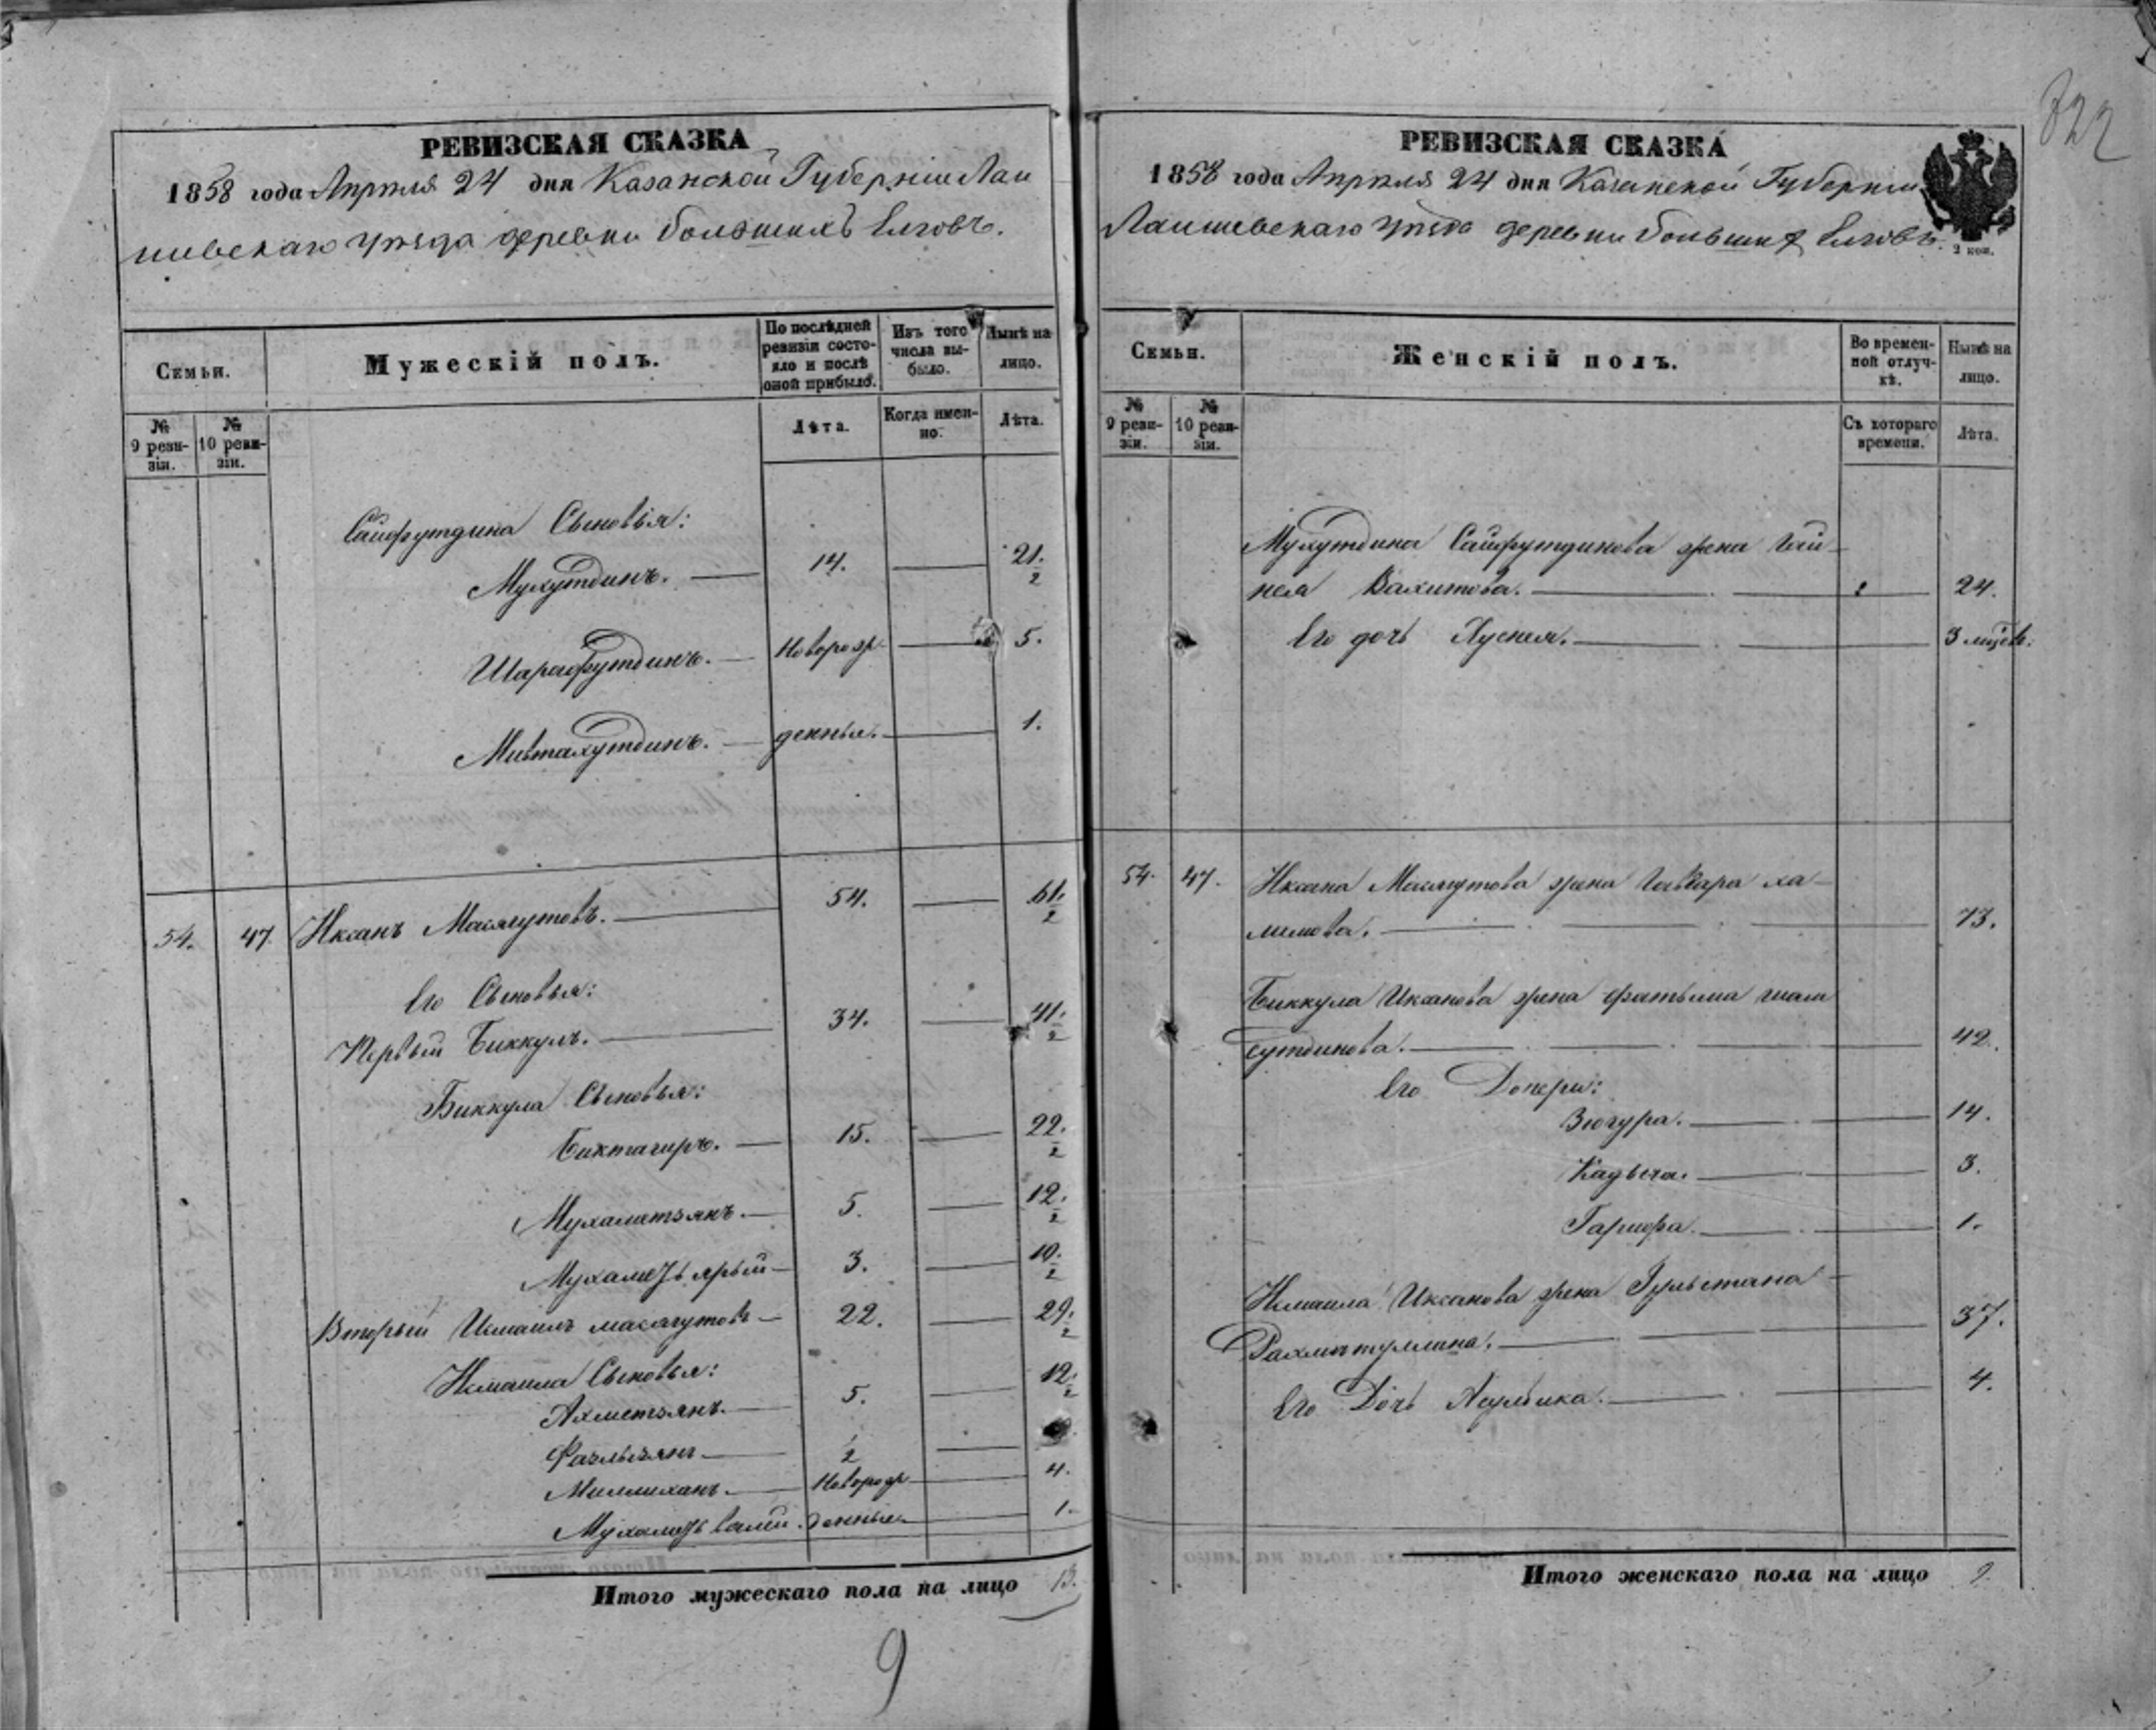 822
РЕВИЗСКАЯ СКАЗКА
1858 года Апреля 24 дня Казанской Губернии Лаи
шевскаго уезда деревни большихъ Елговъ.
Семьи.
Мужескій полъ.
По послѣдней ревизіи состояло и послѣ оной прибыло.
Изъ того числа выбыло.
Нынѣ на лицо.
№ 9 ревизіи.
№ 10 ревизіи.
Лѣта.
Когда именно.
Лѣта.
Сайфутдина Сыновья:
Мухутдинъ. 14. 21. 1/2
Шарафутдинъ. Новорож 5.
Мивтахутдинъ. денныя. 1.
54. 47. Иксанъ Масягутовъ. 54. 61. 1/2
Его Сыновья:
Первый Биккулъ. 34. 41. 1/2
Биккула Сыновья:
Биктагиръ. 15. 22. 1/2
Мухаметзянъ. 5. 12. 1/2
Мухаметь ярый 3. 10. 1/2
Вторый Исмаилъ масягутовъ 22. 29. 1/2
Исмаила Сыновья:
Ахметзянъ. 5. 12. 1/2
Фазлызянъ 1/2
Миллиханъ. Новорож 4.
Мухаметь валей. денныя. 1.
Итого мужескаго пола на лицо 13.
9
РЕВИЗСКАЯ СКАЗКА
1858 года Апреля 24 дня Казанской Губернии
Лаишевскаго уезда деревни большихъ Елговъ.
2 коп.
Семьи.
Женскій полъ.
Во временной отлучкѣ.
Нынѣ на лицо.
№ 9 ревизіи.
№ 10 ревизіи.
Съ котораго времени.
Лѣта.
Мухутдина Сайфутдинова жена Гай-
неля Вахитова. 24.
Его дочь Хуснея. 3 мѣсяц.
54. 47. Иксана Масягутова жена Гавгара ха-
лилова. 73.
Биккула Иксанова жена Фатьима шам
сутдинова. 42.
Его Дочери:
Зюгура. 14.
Кадыча. 3.
Гарифа. 1.
Исмаила Иксанова жена Гульстана
Рахматуллина. 37.
Его Дочь Асулбика. 4.
Итого женскаго пола на лицо 9.